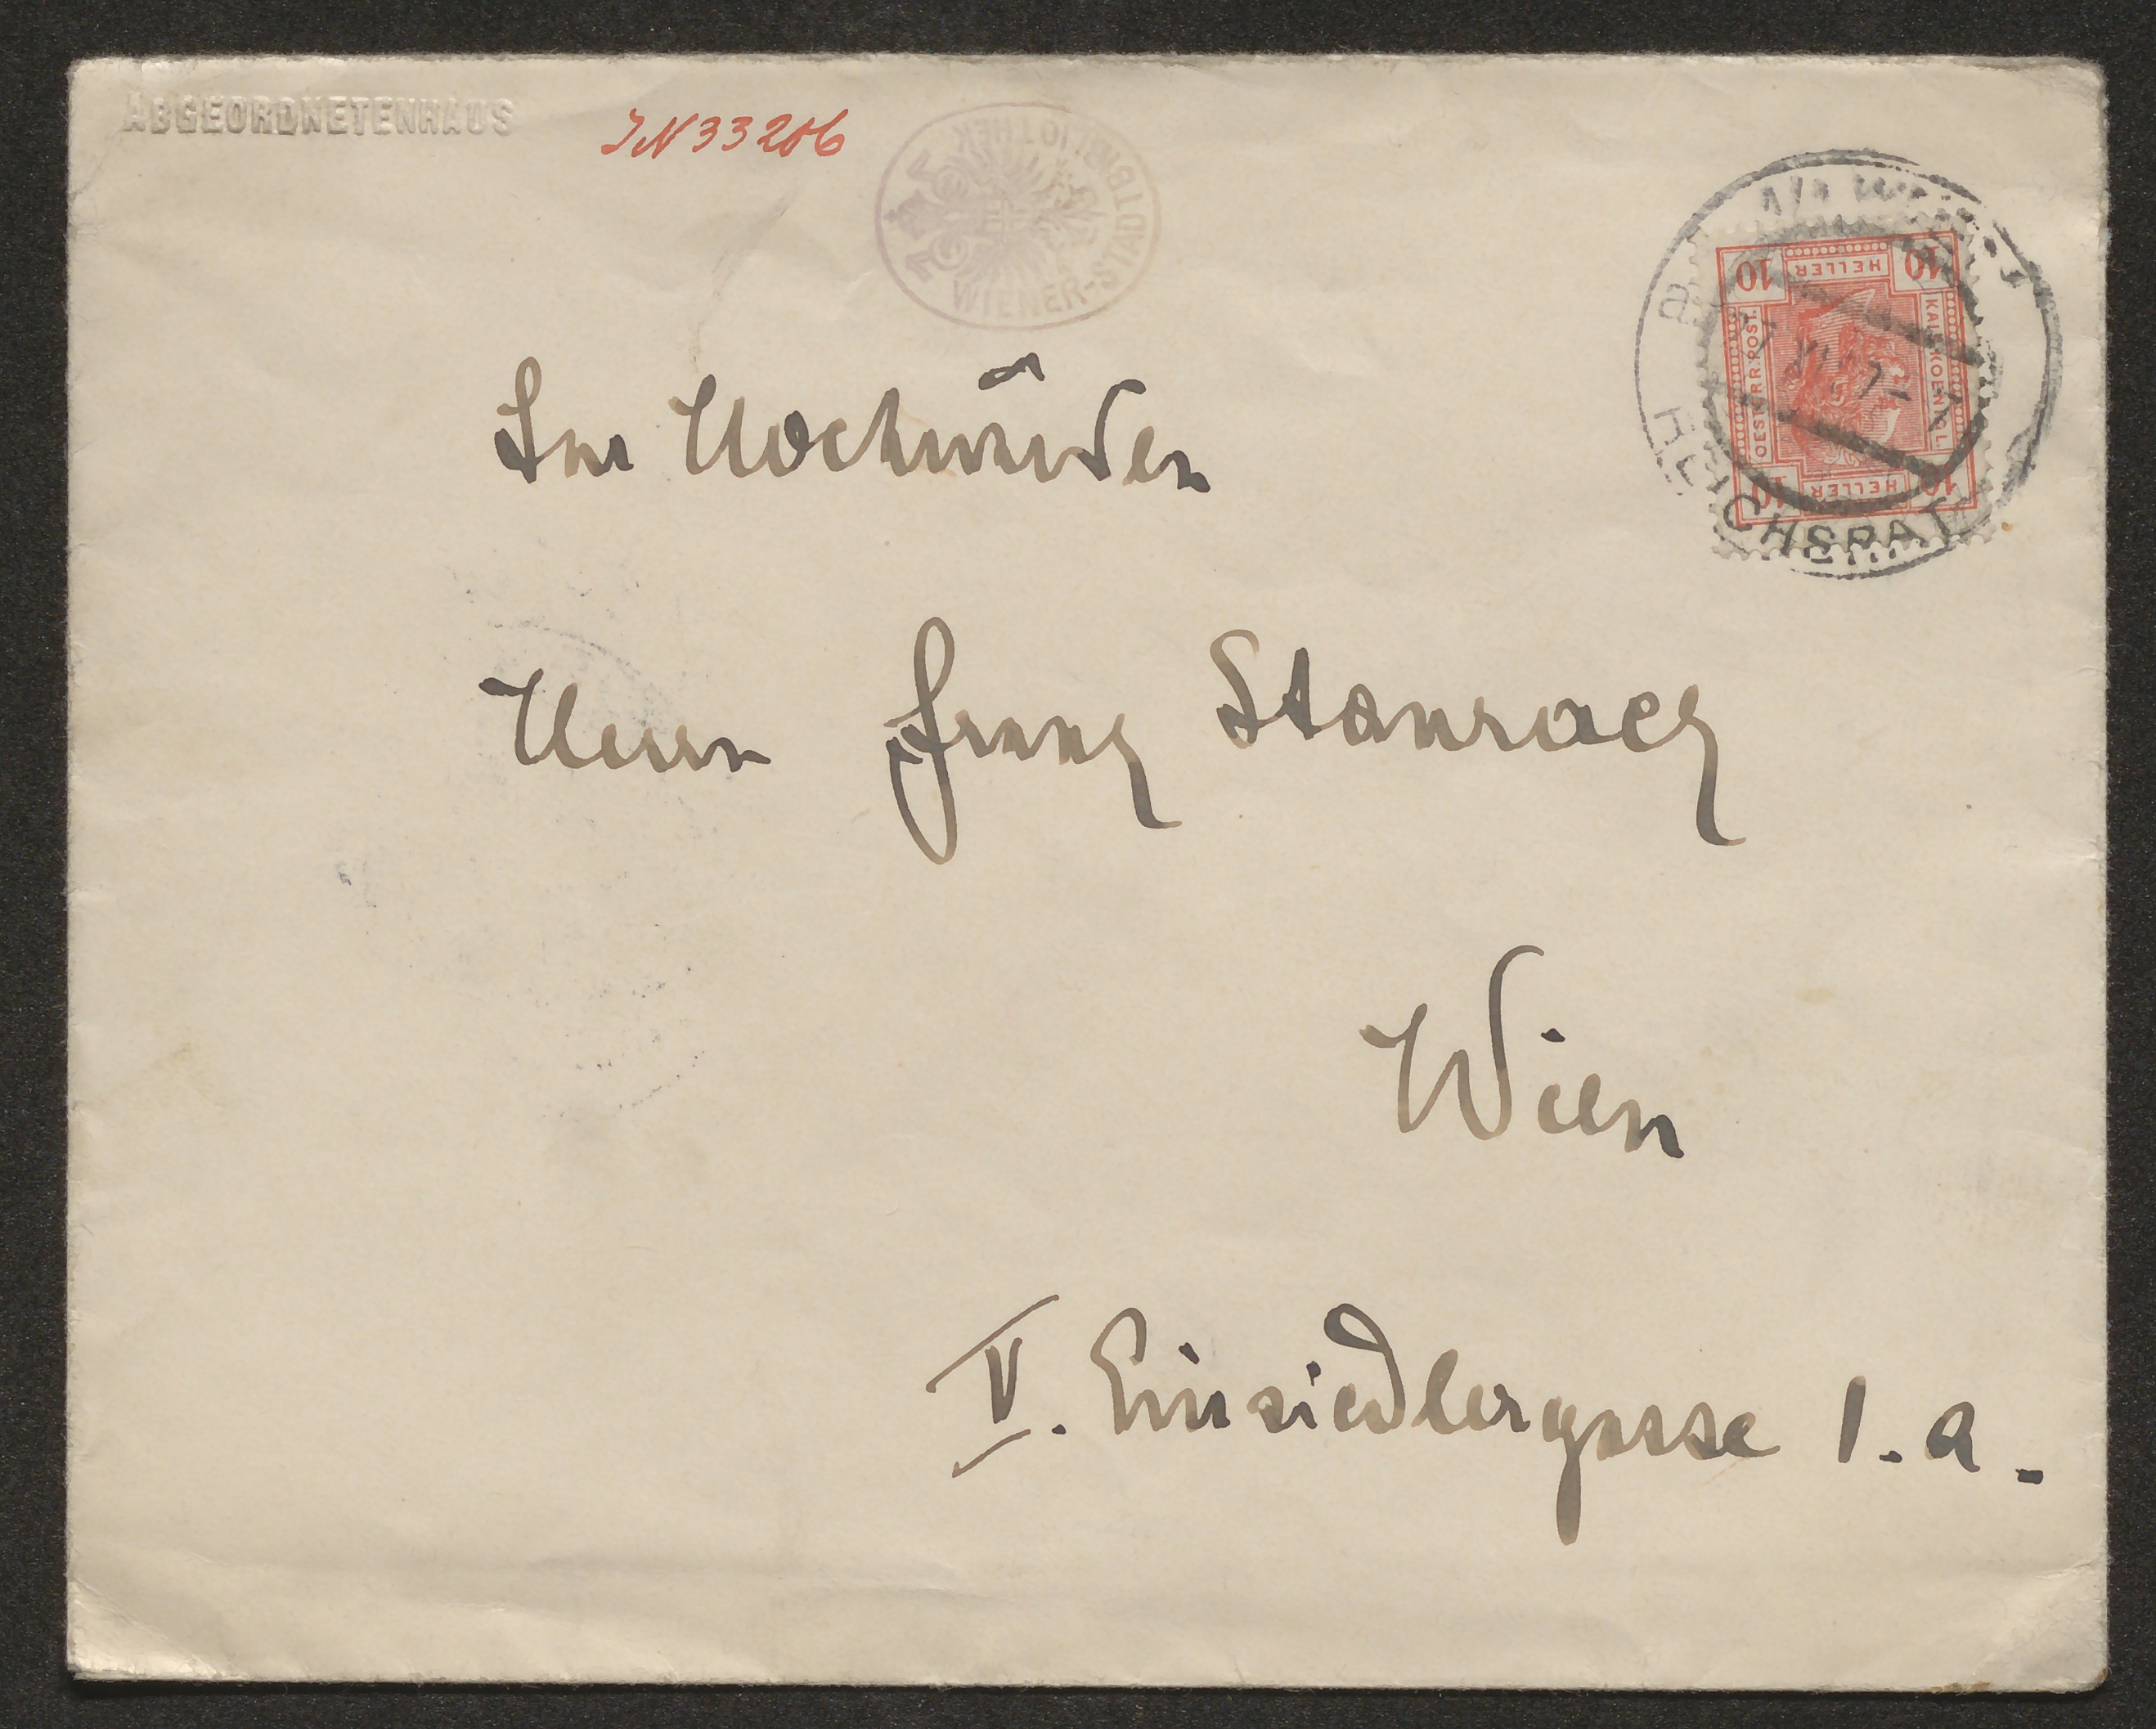 ABGEORDNETENHAUS
IN 33206
WIENER-STADTBIBLIOTHEK
10 HELLER 10
KAIS. KOENIGL.
OESTERR. POST.
10 HELLER 10
REICHSRAT
Sr Hochwürden
Herrn Franz Stauracz
Wien
V. Einsiedlergasse 1.a.